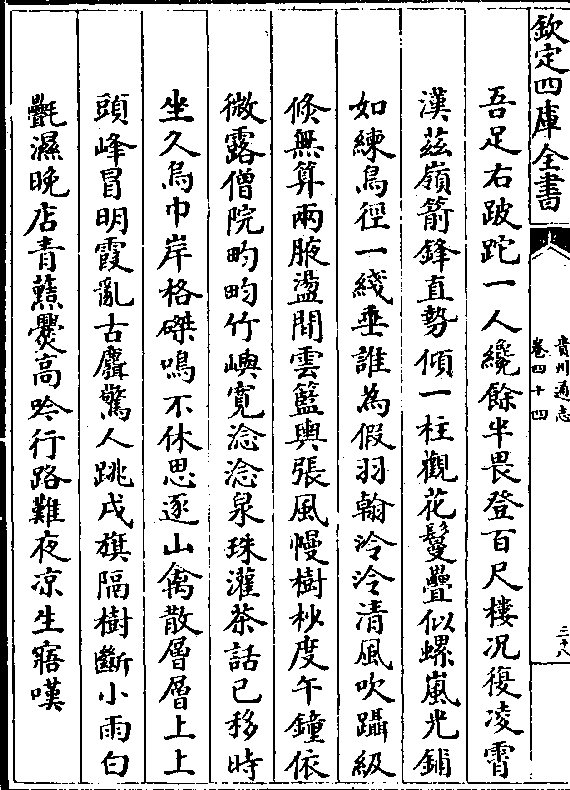 欽定四庫全書
貴州通志
卷四十四
三十八
吾足右跛跎一人纔餘半畏登百尺樓况復凌霄
漢茲嶺箭鋒直勢傾一柱觀花鬘疊似螺嵐光鋪
如練鳥徑一綫垂誰為假羽翰泠泠清風吹躡級
倐無算兩腋盪閒雲籃輿張風幔樹杪度午鐘依
微露僧院畇畇竹嶼寛淰淰泉珠灌茶話已移時
坐久烏巾岸格磔鳴不休思逐山禽散層層上上
頭峰冒明霞亂古麏驚人跳戍旗隔樹斷小雨白
氎濕晚店青蕪爨高吟行路難夜凉生寤嘆